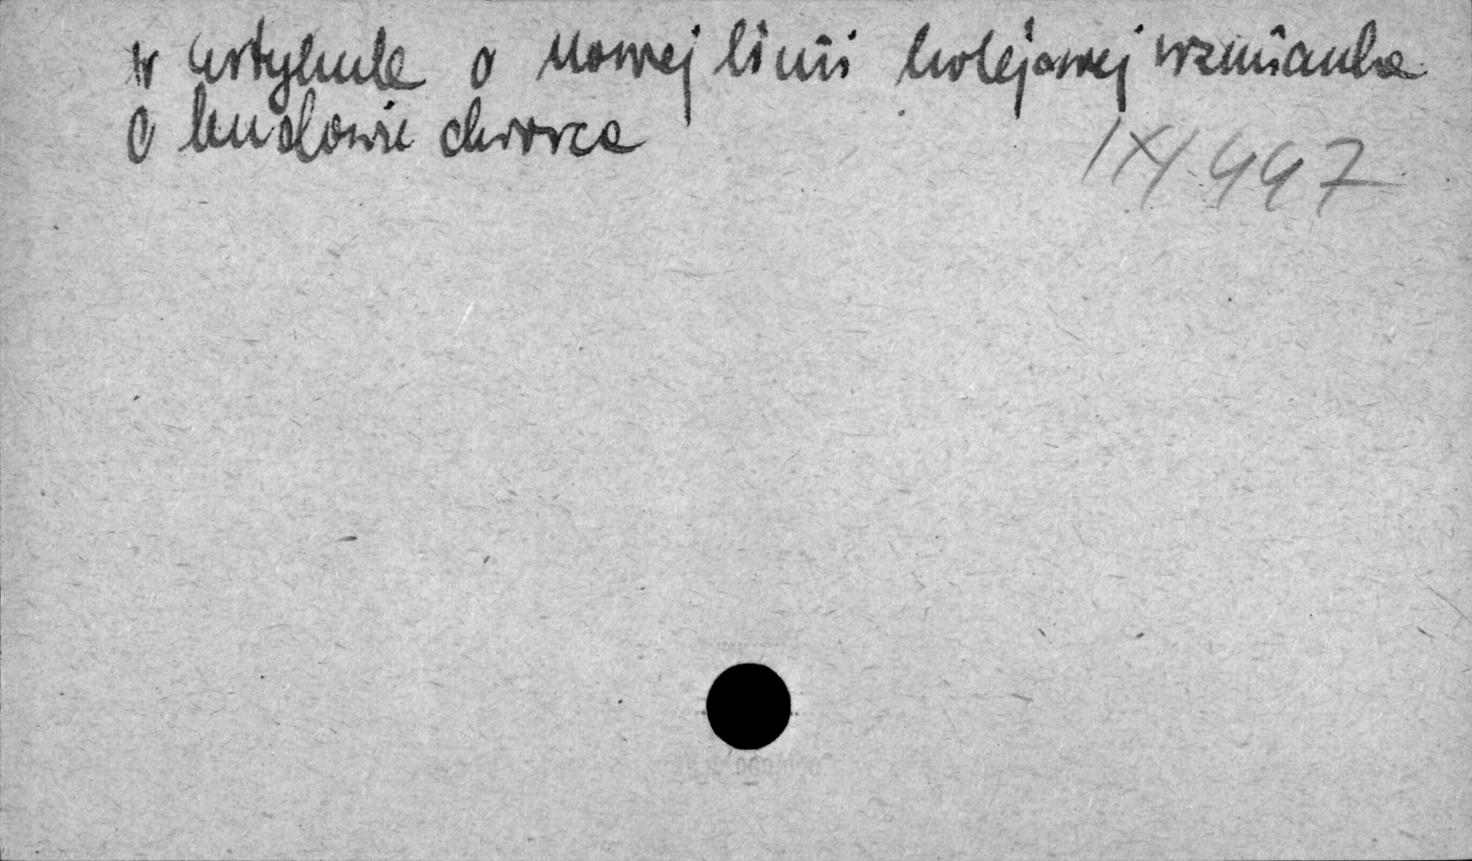 w artykule o nowej linii kolejowej wzmianka
o budowie dworca
IX/447